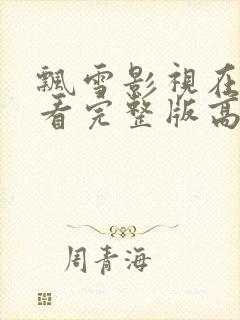 飄雪影視在
看完整版高
周青海